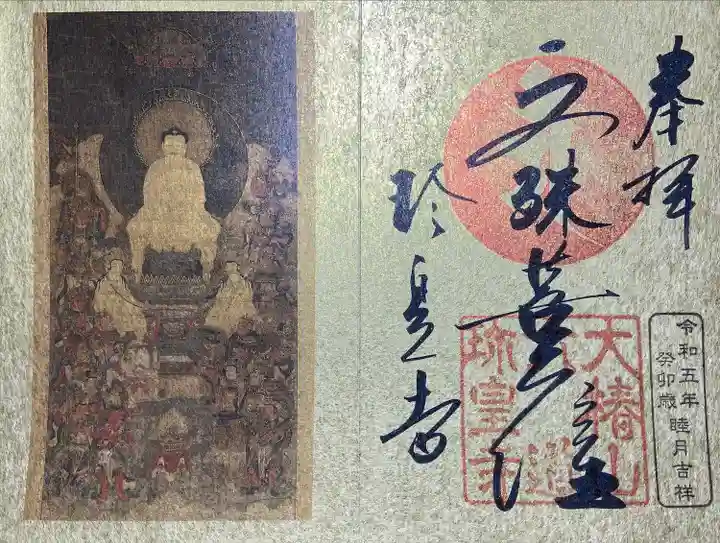 奉拝
文殊菩薩
珍皇寺
大椿山
珍皇寺
令和五年
癸卯歳
睦月吉祥